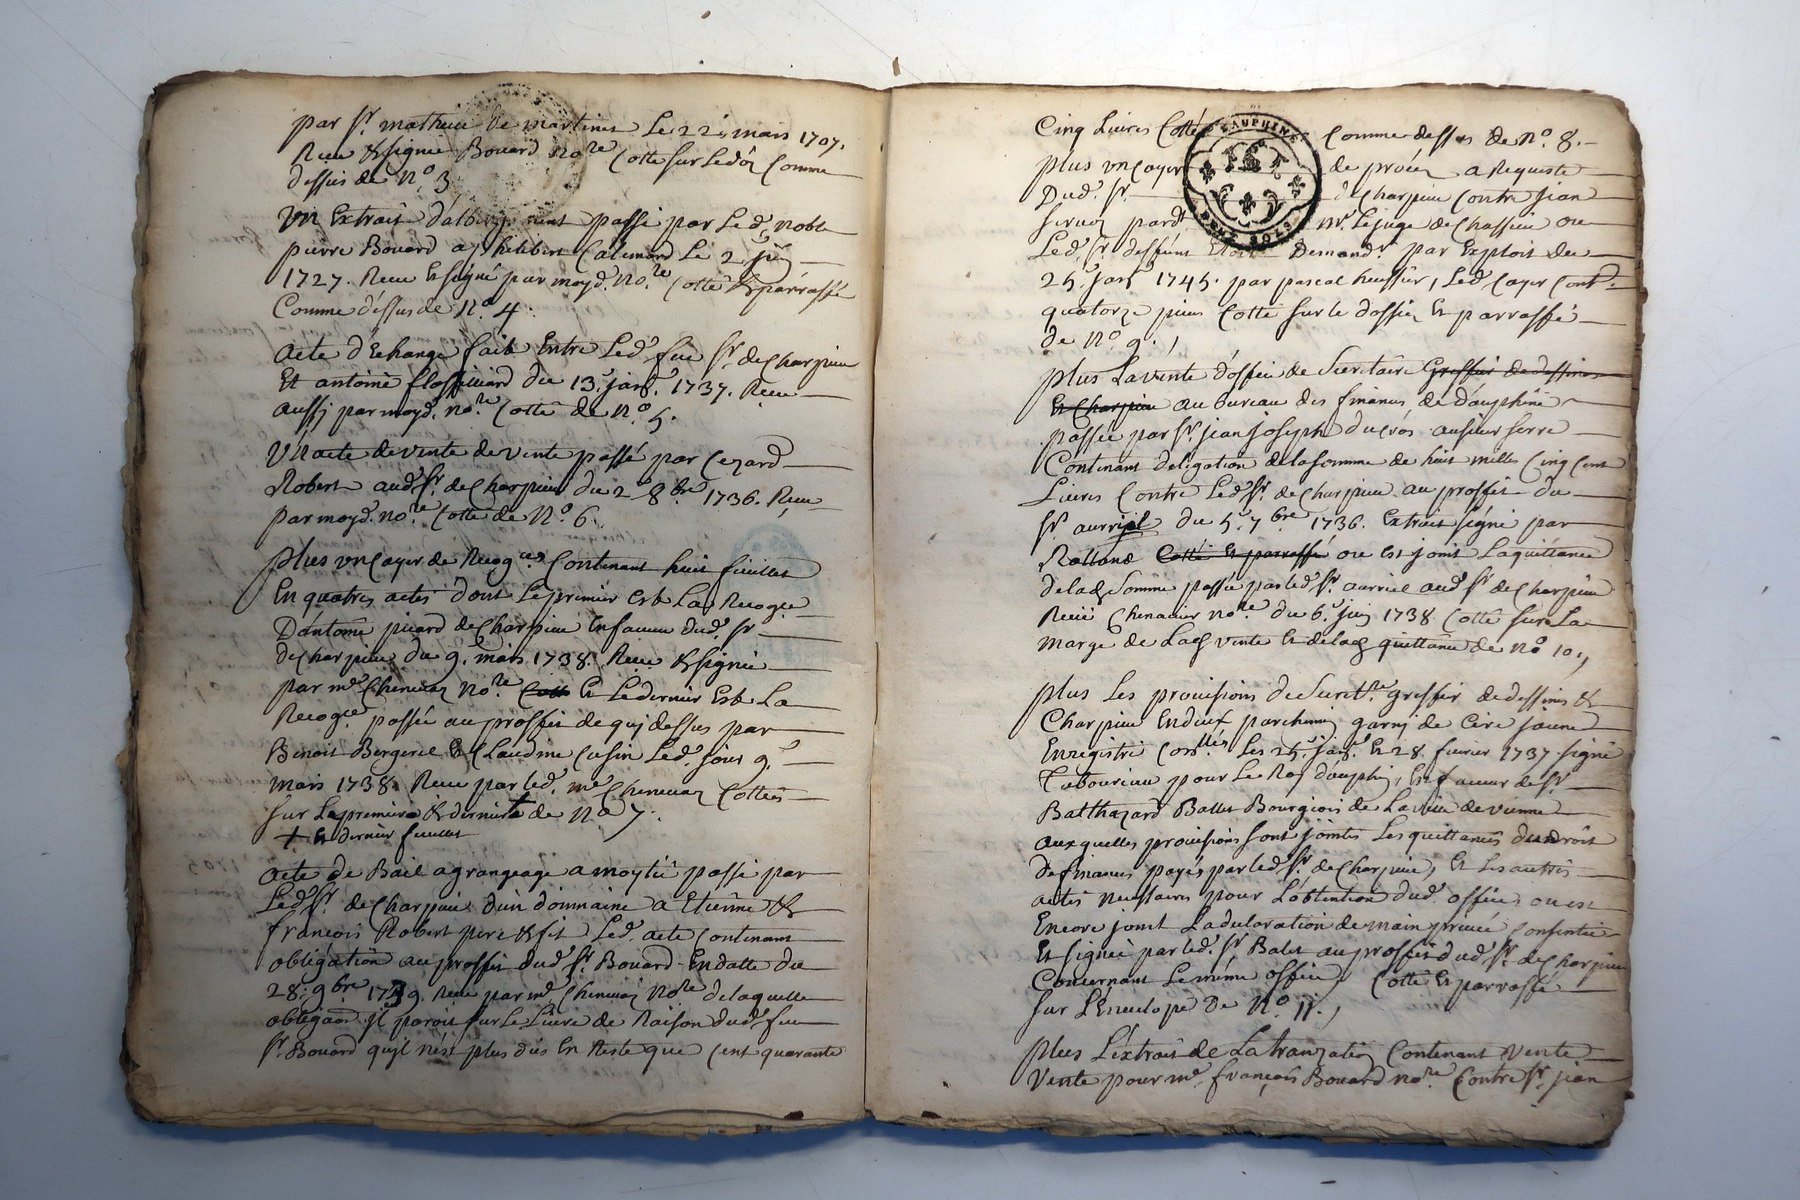 par Sr. mathieu de martines Le 22e. mars 1707.
Reçu & signé Bouard nore Cotté sur Led. Comme
dessus de No. 3
Un Extrait d'albergement passé par Led. noble
pierre Bouard a philibert Calemard Le 2 juin
1727. Receu Et signé par moyd. nore. Cotté & parraffé
Comme dessus de No. 4.
Acte d'Echange fait Entre Led. feu Sr. de Charpieu
Et antoine du 13e. janr. 1737. Receu
aussy par moyd. nore. Cotté de No. 5.
Un acte de vente de vente passé par Cezard
Robert aud. Sr. de Charpieu du 2 8bre 1736. Receu
par moyd. nore Cotté de No. 6.
plus un Cayer de Recogces Contenant huit feuillets
En quatres actes dont Le premier Est La Recogce
D'antoine picard de Charpieu En faveur dud. Sr
de Charpieu du 9. mars 1738. Receu & signée
par me Chenevaz nore. Cotté Et Le dernier Est La
Recogce passée au proffit de quj dessus par
Benoit Bergeret Et Claudine Cusin Led. jour 9e.
mars 1738. Receu par led. me Chenevaz Cottées
sur Le premiere & derniere + de No 7.
+ Et dernier feuillet
Acte de Bail a grangeage a moytié passé par
Led. Sr. de Charpieu d'un domaine a Etienne &
françois Robert pere & fils Led. acte Contenant
obligation au proffit dud. Sr. Bouard En datte du
28. 9bre 1739. Receu par me Chenevaz nore de laquelle
obligaon. jl paroit sur Le Livre de Raison dud. feu
Sr. Bouard qujl n'est plus dus En Reste que Cent quarante
Cinq Livres Cotté Comme dessus de No. 8.
DAUPHINE
DEUX SOLS
plus un Cayer de procéz a Requiste
Dud. Sr. de Charpieu Contre jean
pard. mr. Le juge de Chassieu ou
Led. Sr. deffunt Etoit Demandr. par Exploit du
25. janr. 1745. par pascal huissier, Led. Cayer Cont.
quatorze pieces Cotté sur le dossier Et parraffé
de No. 9.,
plus La vente d'office de Secretaire Greffier de dessines
Et Charpieu au bureau des finances de dauphiné
passée par Sr. jean joseph ducros au sieur serre
Contenant deligation de la somme de huit milles Cinq Cent
Livres Contre Led. Sr. de Charpieu au proffit du
Sr. aurriel du 5. 7bre 1736. Extrait signé par
Rolland Cotté Et parraffé ou est joint La quittance
de lad. somme passée par led. Sr. aurriel aud. Sr. de Charpieu
Receu Chenavier nore du 6. juin 1738 Cotté sur La
marge de Lad. vente Et de lad. quittance de No 10.,
plus Les provisions de Secretre. greffier de dessines &
Charpieu En deux parchemin garnj de Cire jaune
Enregistré Les 25. janr. Et 28. fevrier 1737 signé
Taboureau pour Le Roy dauphin, En faveur de Sr.
Balthazard Ballet Bourgeois de La ville de vienne
auxquelles provisions sont jointes Les quittances du droit
De finances payés par led. Sr. de Charpieu, Et Les autres
actes necessaires pour L'obtention dud. office, ou est
Encore joint La declaration de main privée Consentie
Et signée par led. Sr. Balet au proffit dud. Sr. de Charpieu
Concernant Le même office, Cotté Et parraffé
sur L'Enveloppe De No. 11.,
plus L'extrait de La tranzation Contenant Vente
Vente pour me. françois Bouard nore. Contre Sr. jean